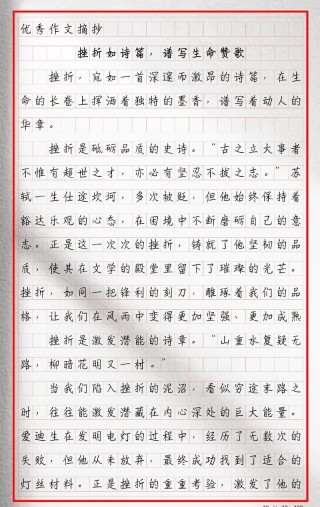 优秀作文摘抄
挫折如诗篇，谱写生命赞歌
挫折，宛如一首深邃而激昂的诗篇，在生
命的长卷上挥洒着独特的墨香，谱写着动人的
华章。
挫折是砥砺品质的史诗。“古之立大事者
不惟有超世之才，亦必有坚忍不拔之志。”苏
轼一生仕途坎坷，多次被贬，但他始终保持着
豁达乐观的心态，在困境中不断磨砺自己的意
志。正是这一次次的挫折，铸就了他坚韧的品
质，使其在文学的殿堂里留下了璀璨的光芒。
挫折，如同一把锋利的刻刀，雕琢着我们的品
格，让我们在风雨中变得更加坚强、更加成熟
挫折是激发潜能的诗章。“山重水复疑无
路，柳暗花明又一村。”
当我们陷入挫折的泥沼，看似穷途末路之
时，往往能激发潜藏在内心深处的巨大能量。
爱迪生在发明电灯的过程中，经历了无数次的
失败，但他从未放弃，最终成功找到了适合的
灯丝材料。正是挫折的重重考验，激发了他的